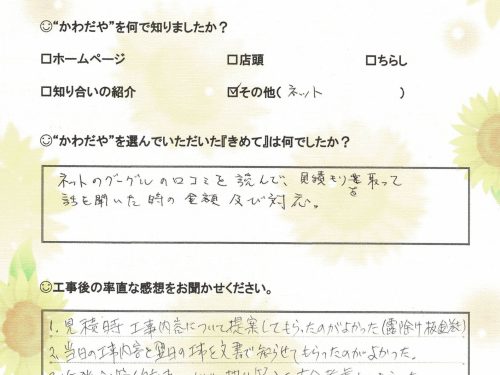 ☺“かわだや”を何で知りましたか？
□ホームページ □店頭 □ちらし
□知り合いの紹介 ☑その他( ネット )
☺“かわだや”を選んでいただいた『きめて』は何でしたか？
ネットのグーグルの口コミを読んで、見積もりを取って
話を聞いた時の金額及び対応。
☺工事後の率直な感想をお聞かせください。
1. 見積時 工事内容について提案してもらったのがよかった(霧除け板金等)
2. 当日の工事内容と翌日の工事を文書で知らせてもらったのがよかった。
3.